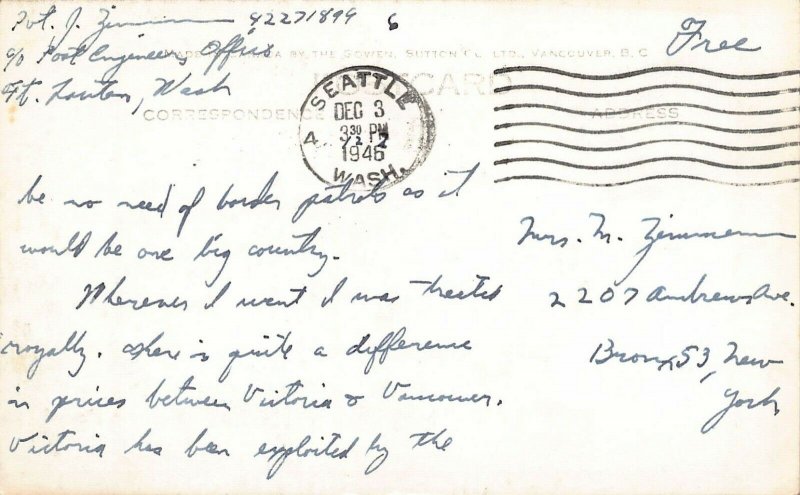 Pvt. J. Zimmerman 42271899 6
c/o Post Engineers Office
Ft. Lawton, Wash
Free
MADE IN CANADA BY THE GOWEN, SUTTON CO. LTD., VANCOUVER, B.C.
POSTCARD
CORRESPONDENCE
ADDRESS
SEATTLE
DEC 3
4 3 30 PM
1946
WASH.
be no need of border patrols as it
would be one big country.
Wherever I went I was treated
royally. There is quite a difference
in prices between Victoria & Vancouver.
Victoria has been exploited by the
Mrs. M. Zimmerman
2207 Andrews Ave.
Bronx 53, New
York